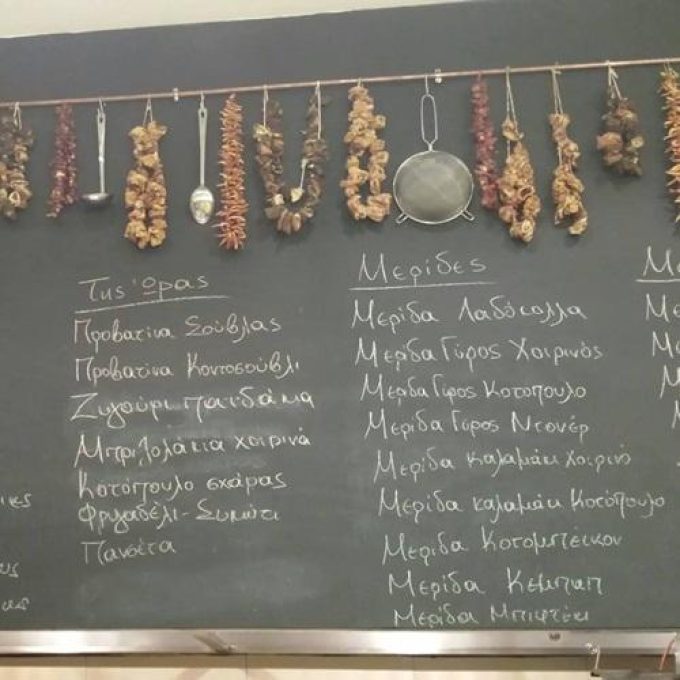 Της Ώρας
Προβατίνα Σούβλας
Προβατίνα Κοντοσούβλι
Ζυγούρι παιδάκια
Μπριζολάκια χοιρινά
Κοτόπουλο σχάρας
Φρυγαδέλι - Συκώτι
Πανσέτα
Μερίδες
Μερίδα Λαδόκολλα
Μερίδα Γύρος Χοιρινός
Μερίδα Γύρος Κοτόπουλο
Μερίδα Γύρος Ντονέρ
Μερίδα καλαμάκι Χοιρινό
Μερίδα καλαμάκι Κοτόπουλο
Μερίδα Κοτομπέικον
Μερίδα Κεμπάπ
Μερίδα Μπιφτέκι